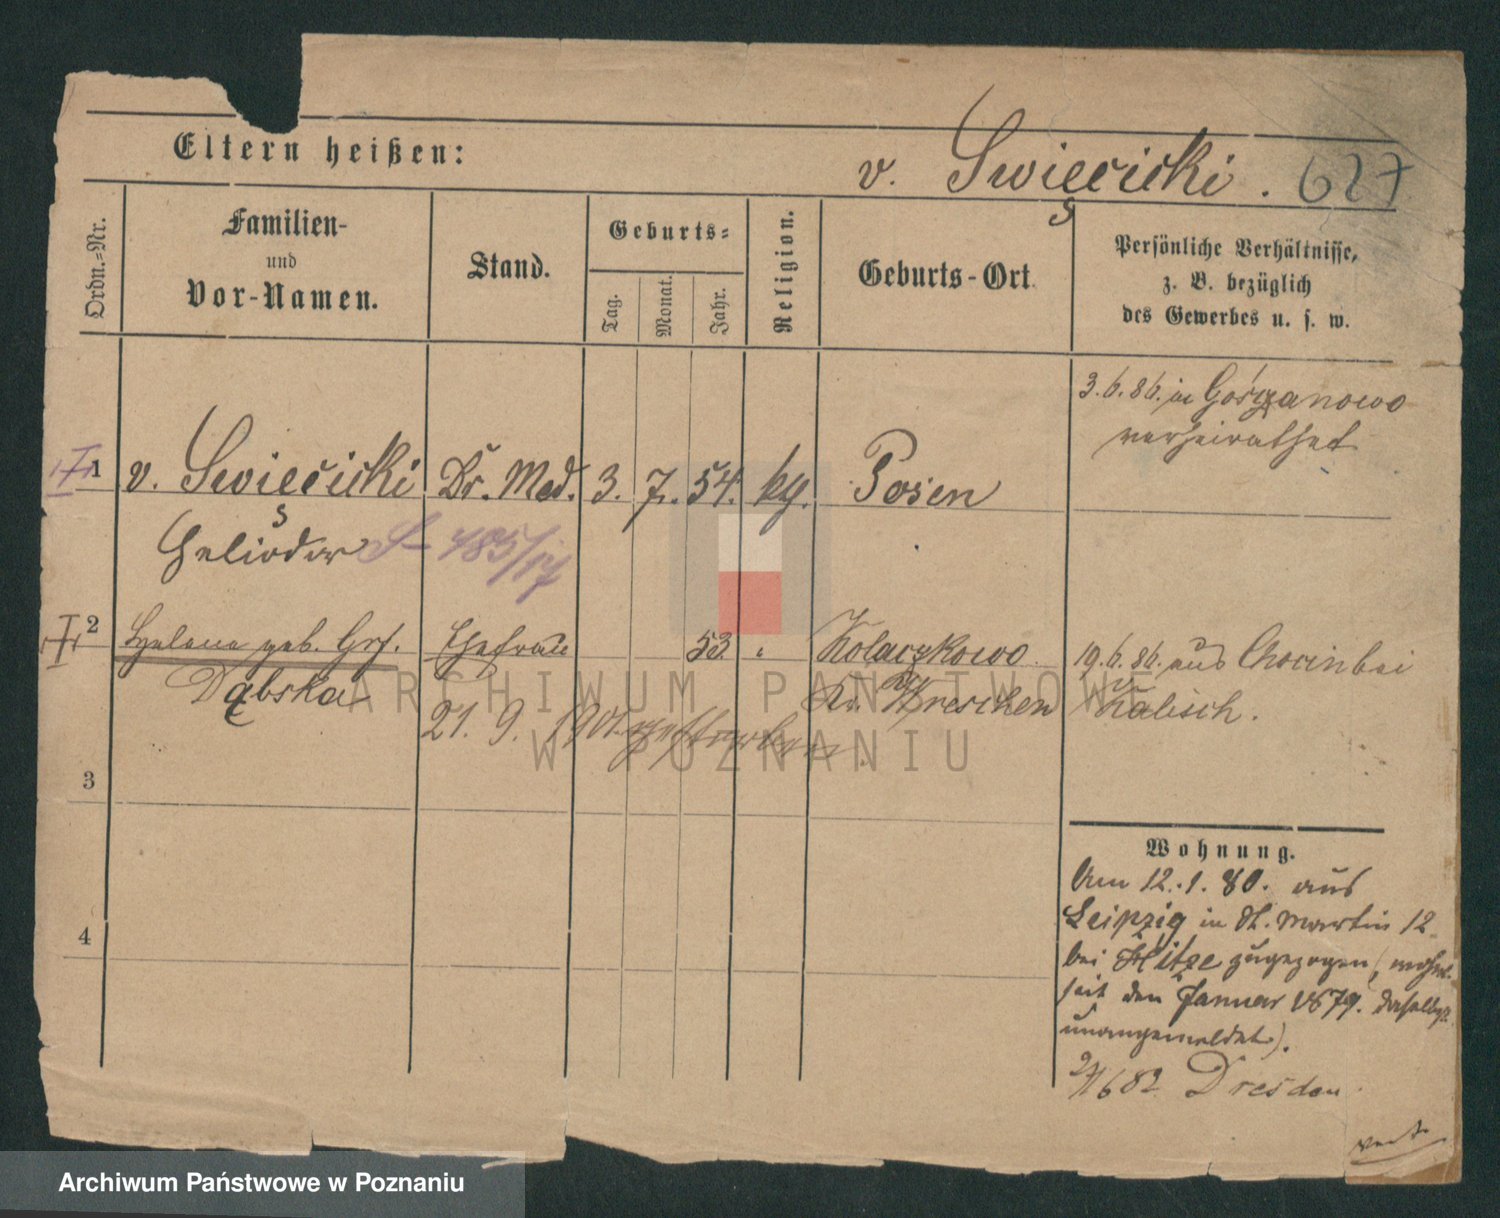 Eltern heißen:
v. Swięcicki. 627
Ordn.=Nr.
Familien-
und
Vor-Namen.
Stand.
Geburts=
Tag.
Monat.
Jahr.
Religion.
Geburts-Ort.
Persönliche Verhältnisse,
z. B. bezüglich
des Gewerbes u. s. w.
3. 6. 86. in
verheirathet
1 v. Swięcicki Dr. Med. 3. 7. 54. kth. Posen
Heliodor S 485/17
2 Helene geb. Grf. Ehefrau 53. Kolaczkowo
Dąbska Kr. Wreschen
21. 9. 1901 gestorben.
19. 6. 86. aus Chocin bei
Kalisch.
3
4
Wohnung.
Am 12. 1. 80. aus
Leipzig in St. Martin 12
bei Hitze zugezogen (wohnt
seit den Januar 1879. daselbst
unangemeldet).
Dresden
ARCHIWUM PAŃSTWOWE
W POZNANIU
Archiwum Państwowe w Poznaniu